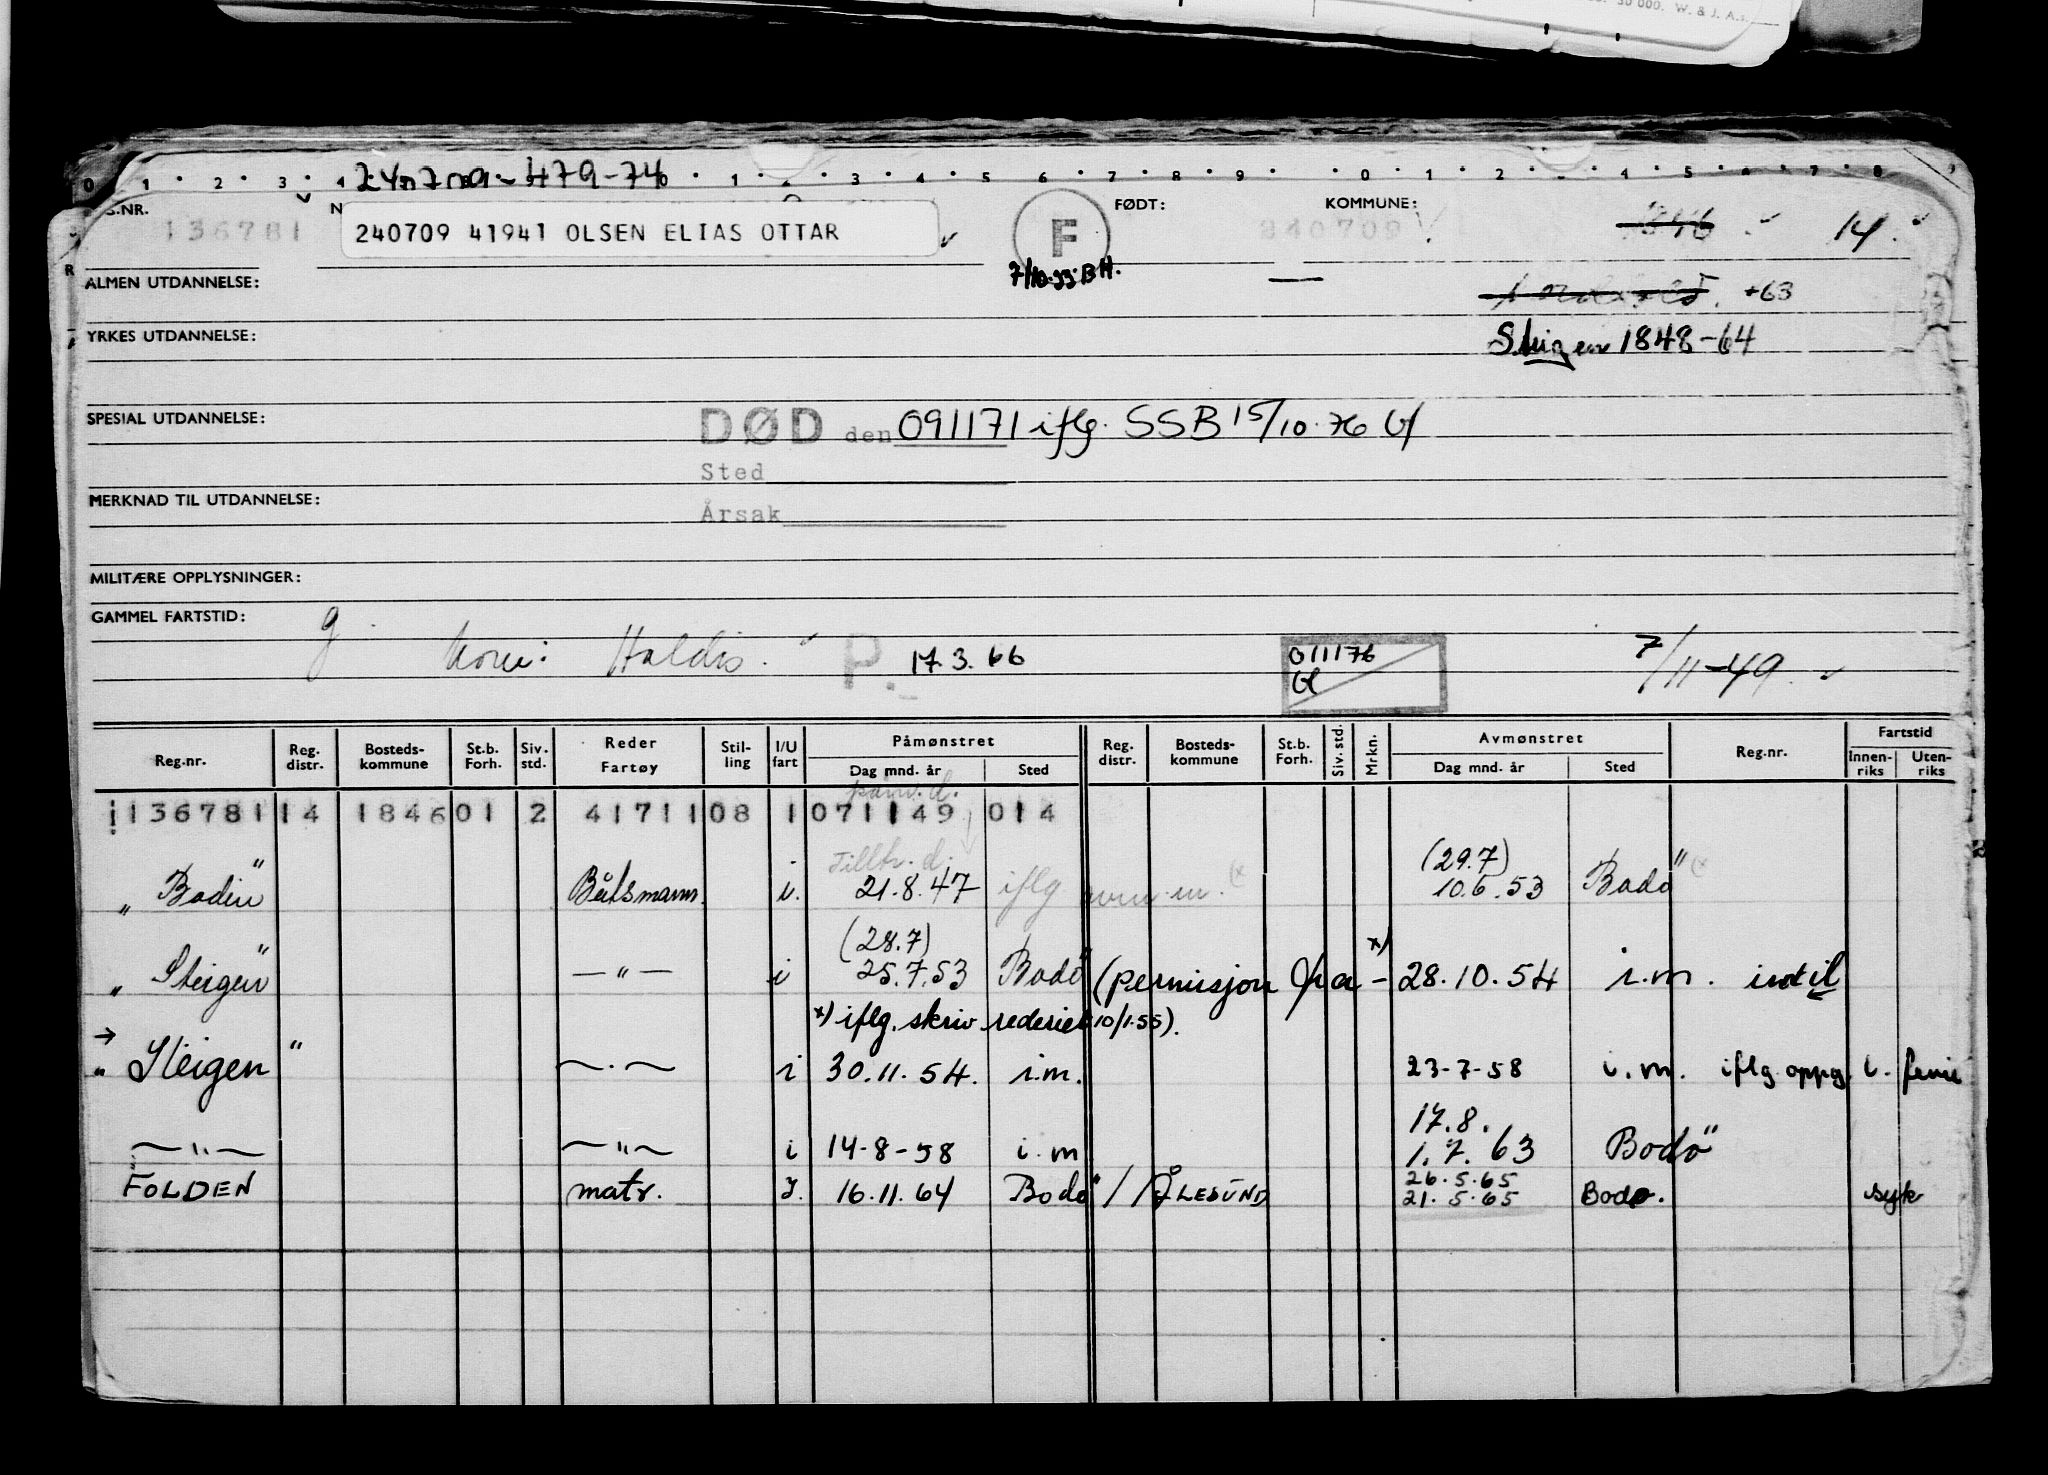 30 000. W. & J. A.s
0 1 2 3 4 1 3 4 5 6 7 8 9 0 1 2 4 5 7 8
136781
240709 41941 OLSEN ELIAS OTTAR
F
FØDT: 240709
KOMMUNE: 14.
7/10-55 BH.
ALMEN UTDANNELSE:
+63
YRKES UTDANNELSE:
Steigen 1848-64
SPESIAL UTDANNELSE:
DØD den 091171 iflg. SSB 15/10-76
Sted
MERKNAD TIL UTDANNELSE:
Årsak
MILITÆRE OPPLYSNINGER:
GAMMEL FARTSTID: g.
Kone: Haldis. P. 17.3.66 011176 7/11-49
Reg.nr. Reg. distr. Bosteds- kommune St.b. Forh. Siv. std. Reder Fartøy Stil- ling I/U fart Påmønstret Dag mnd. år Sted Reg. distr. Bosteds- kommune St.b. Forh. Siv. std. Mrkn. Avmønstret Dag mnd. år Sted Reg.nr. Fartstid Innen- riks Uten- riks
136781 14 1846 01 2 41711 08 1 071149 014
Tiltr. d. (29.7)
"Bodin" Båtsmann. i. 21.8.47 iflg 10.6.53 Bodø
(28.7) x)
"Steigen" — " — i 25.7.53 Bodø (permisjon fra - 28.10.54 i.m. inntil
x) iflg. skriv rederiet 10/1.55).
→
"Steigen" — " — i 30.11.54. i.m. 23-7-58 i.m. iflg. oppg. i. ferie
17.8.
— " — — " — i 14-8-58 i.m 1.7.63 Bodø
26.5.65
FOLDEN matr. I. 16.11.64 Bodø // ÅLESUND 21.5.65 Bodø. syk